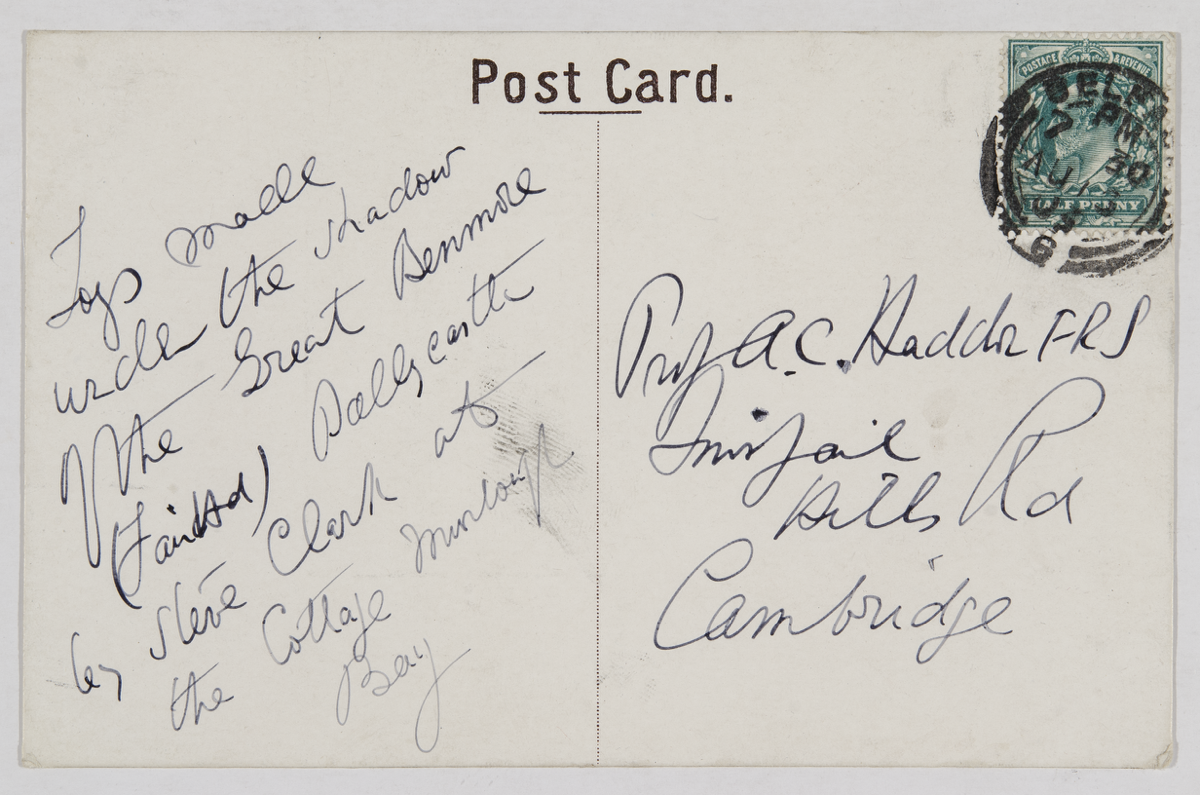 Post Card.
POSTAGE & REVENUE
HALF PENNY
7 PM
30
6
Toys made
under the shadow
of the Great Benmore
(Fair Hd) Ballycastle
by Steve Clark at
the Cottage Murlough
Bay
Prof A.C. Haddon FRS
Inisfail
Hills Rd
Cambridge